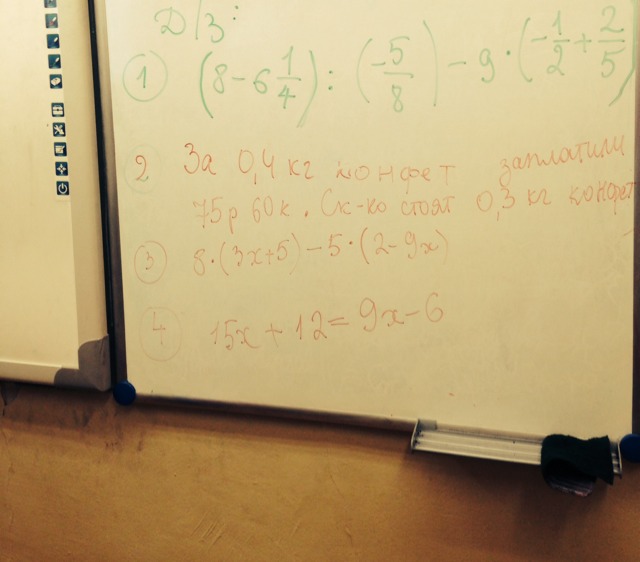 Д/з:
1 (8 - 6 1/4) : (-5/8) - 9 · (-1/2 + 2/5)
2 За 0,4 кг конфет заплатили
75 р 60 к. Ск-ко стоят 0,3 кг конфет
3 8·(3x+5) - 5·(2-9x)
4 15x + 12 = 9x - 6